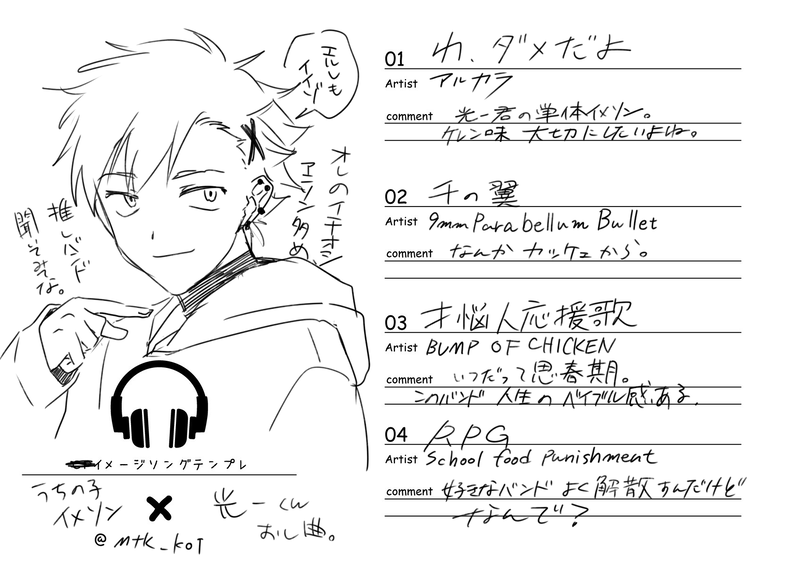 エルレも
イイゾ
オレのイチオシ
エソンタめ
推しバンド
聞いてみてな。
イメージソングテンプレ
うちの子
イメソン
×
光一くん
おし曲。
@mtk_kot
01 わ、ダメだよ
Artist アルカラ
comment 光一君の単体イメソン。
ケレン味 大切にしたいよね。
02 千の翼
Artist 9mm Parabellum Bullet
comment なんか カッケェから。
03 才悩人応援歌
Artist BUMP OF CHICKEN
comment いつだって思春期。
このバンド 人生の バイブル感ある。
04 RPG
Artist School food Punishment
comment 好きなバンド よく解散すんだけど
なんで?